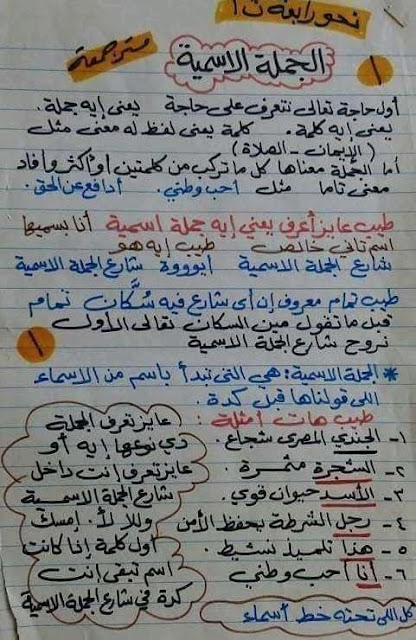 نحو رابعة ت١
مترجمعة
الجملة الاسمية
١
أول حاجة تعالى نتعرف على حاجة يعنى إيه جملة.
يعنى إيه كلمة. كلمة يعنى لفظ له معنى مثل
(الإيمان - الصلاة)
أما الجملة معناها كل ما تركب من كلمتين أو أكثر وأفاد
معنى تاما مثل أحب وطني. أدافع عن الحق.
طيب عايز أعرف يعني إيه جملة اسمية أنا بسميها
اسم تاني خالص طيب إيه هو
شارع الجملة الاسمية أيوووة شارع الجملة الاسمية
طيب تمام معروف إن أى شارع فيه سُكَّان تمام
قبل ما تقول مين السكان تعالى الأول
نروح شارع الجملة الاسمية
١
* الجملة الاسمية: هي التى تبدأ باسم من الأسماء
اللى قولناها قبل كدة.
طيب هات أمثلة:
١- الجندي المصرى شجاع.
٢- الشجرة مثمرة.
٣- الأسد حيوان قوي.
٤- رجل الشرطة يحفظ الأمن
٥- هذا تلميذ نشيط.
٦- أنا أحب وطني
عايز تعرف الجملة
دي نوعها إيه أو
عايز تعرف إنت داخل
شارع الجملة الاسمية
وللا لأ. إمسك
أول كلمة إذا كانت
اسم تبقى إنت
كدة في شارع الجملة الاسمية
كل اللى تحته خط أسماء